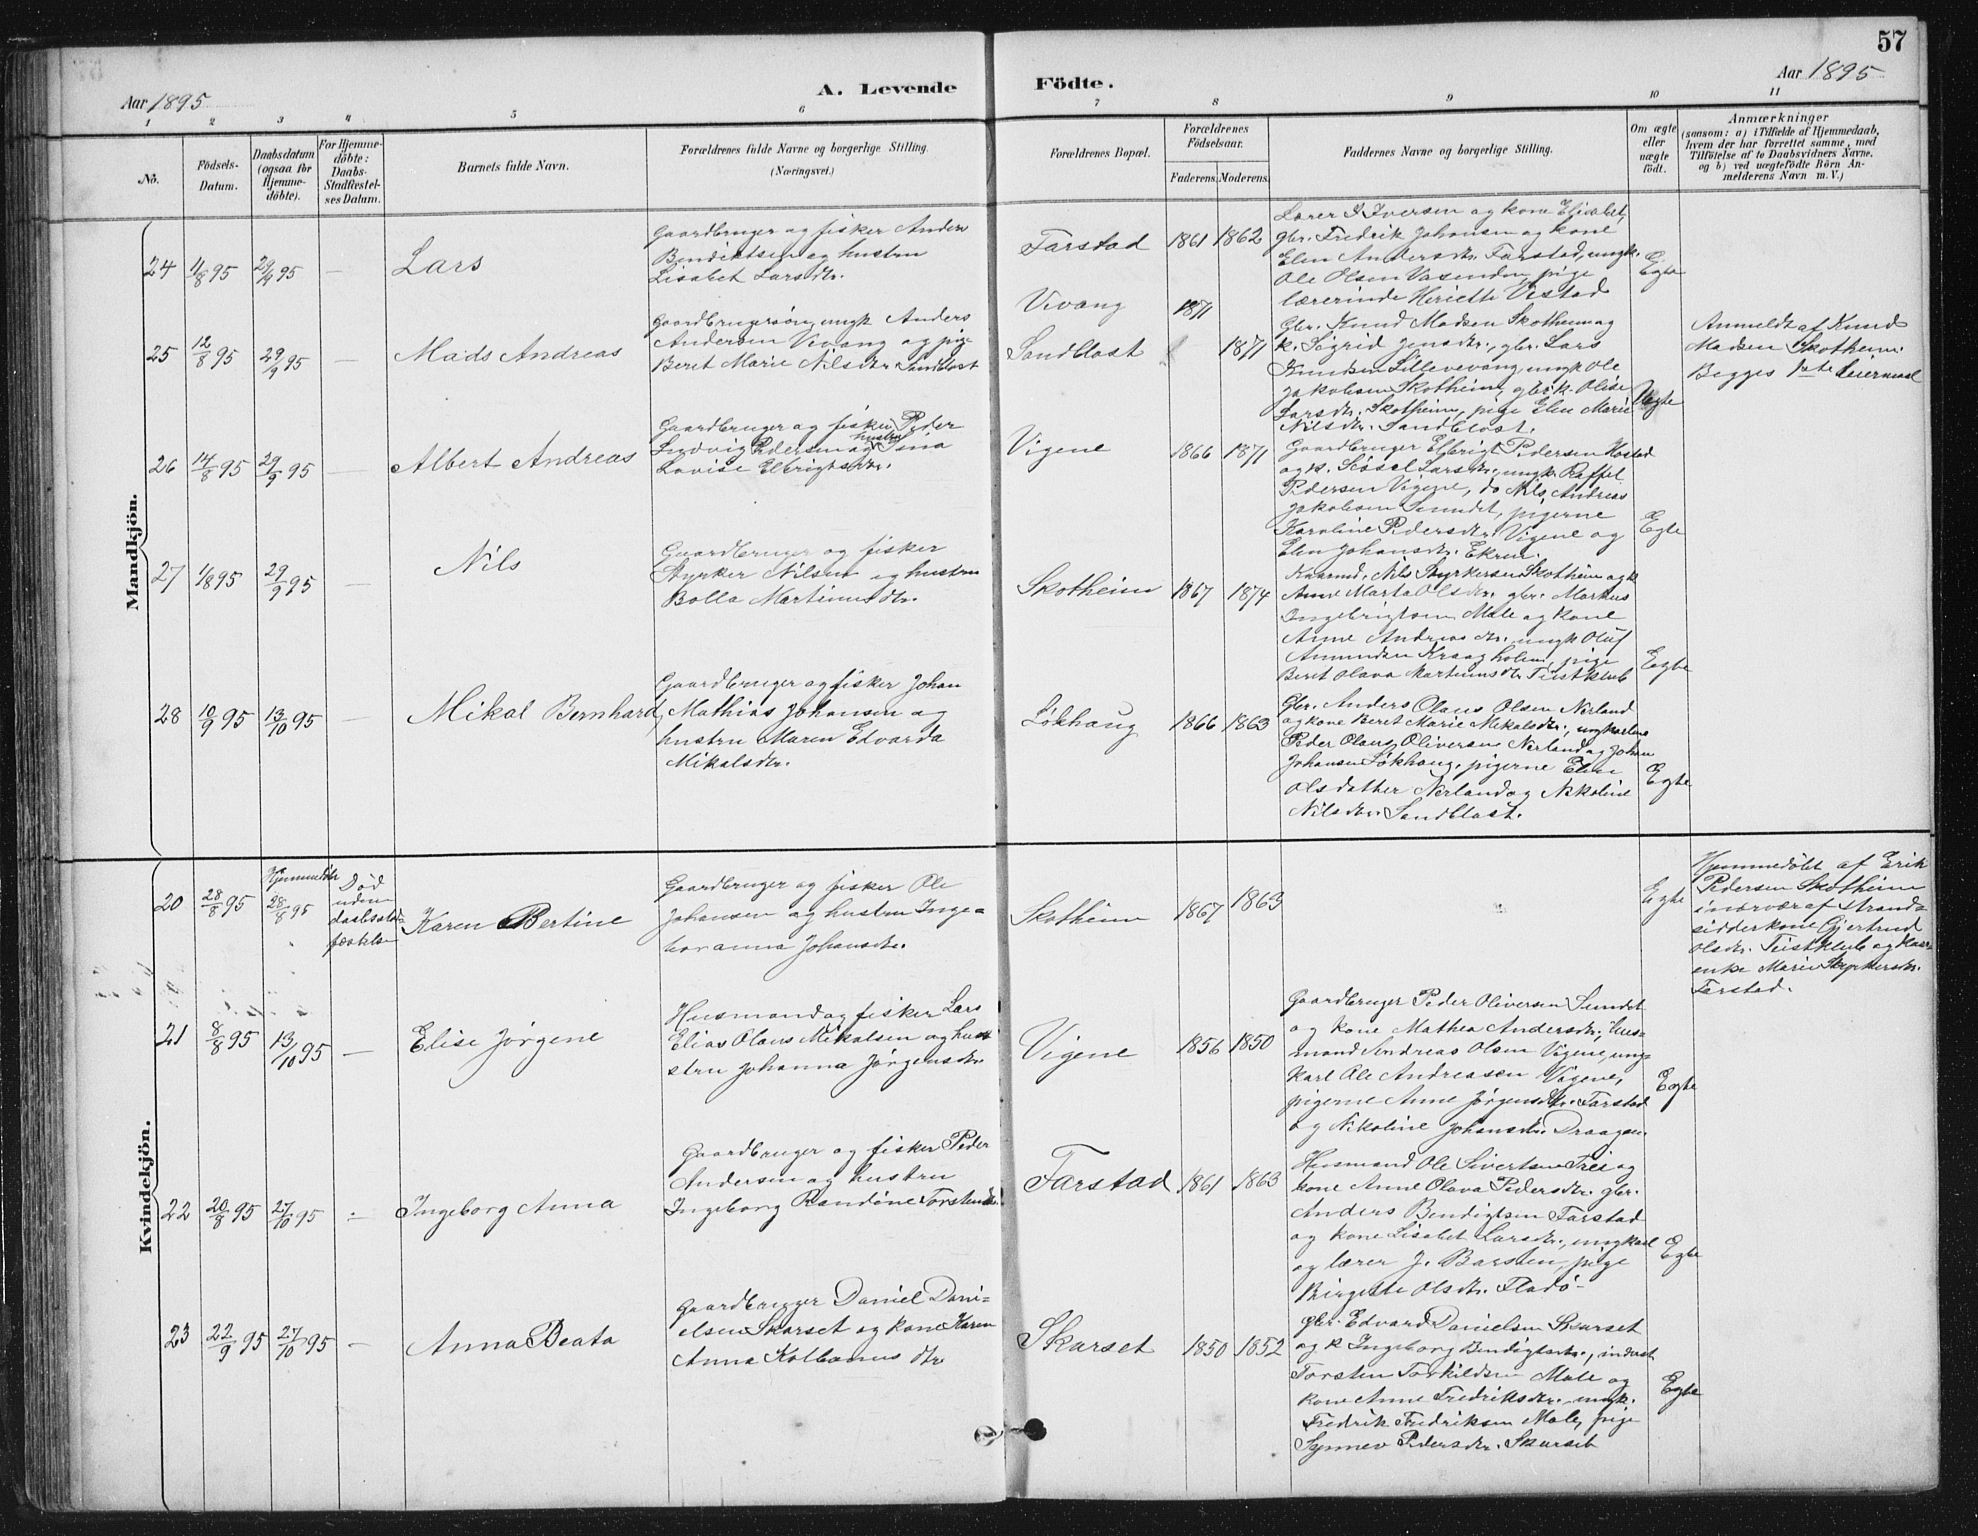 57
Aar 1895
A. Levende
Födte.
Aar 1895
1 2 3 4 5 6 7 8 9 10 11
No.
Födsels-
Datum.
Daabsdatum
(ogsaa for
Hjemme-
döbte).
For Hjemme-
döbte:
Daabs-
Stadfæstel-
ses Datum.
Barnets fulde Navn.
Forældrenes fulde Navne og borgerlige Stilling.
(Næringsvei.)
Forældrenes Bopæl.
Forældrenes
Födselsaar.
Faderens. Moderens.
Faddernes Navne og borgerlige Stilling.
Om ægte
eller
uægte
födt.
Anmærkninger
(saasom: a) i Tilfælde af Hjemmedaab,
hvem der har forrettet samme, med
Tilföielse af to Daabsvidners Navne,
og b) ved uægtefödte Börn An-
melderens Navn m. V.)
Mandkjön.
24 1/8 95 29/9 95 —
Lars
Gaardbruger og fisker Anders
Bendiktsen og hustru
Lisabet Larsdtr.
Farstad
1861 1862
Lærer I Iversen og kone Elisabet,
gbr. Fredrik Johansen og kone
Elen Andersdtr. Farstad, ungk.
Ole Olsen Vasenden, pige
lærerinde Heriette Vestad
Egte
25 12/8 95 29/9 95 —
Mads Andreas
Gaardbrugersøn, ungk Anders
Andersen Vevang og pige
Beret Marie Nilsdtr Sandblost
Vevang
1871
Sandblost
1871
Gbr. Knud Madsen Skotheim og
k. Sigrid Jensdtr., gbr. Lars
Knudsen Lillevevang, ungk Ole
Jakobsen Skotheim, gbr k. Olise
Larsdtr. Skotheim, pige Elen Marie
Nilsdtr. Sandblost.
Uegte
Anmeldt af Knud
Madsen Skotheim.
Begges 1ste leiermaal
26 14/8 95 29/9 95 —
Albert Andreas
Gaardbruger og fisker Peder
Ludvig Pedersen og hustru
Lovise Elbrigtsdtr.
Vigene
1866 1871
Gaardbruger Elbrigt Pedersen Hostad
og k. Larsdtr., ungk. Raffel
Pedersen Vigene, do Nils Andreas
Jakobsen Sundet, pigerne
Karoline Pedersdtr. Vigene og
Elen Johansdtr. Ekren.
Egte
27 1/8 95 29/9 95 —
Nils
Gaardbruger og fisker
Styrker Nilsen og hustru
Bolla Martinusdtr.
Skotheim
1867 1874
Nils Styrkersen Skotheim og k
Anne Marta Olsdtr. gbr. Markus
Ingebrigtsen Male og kone
Anne Andreasdtr. ungk Oluf
Amundsen Kraagholm, pige
Beret Olava Martinusdtr Teistklub
Egte
28 10/9 95 13/10 95 —
Mikal Bernhard
Gaardbruger og fisker Johan
Mathias Johansen og
hustru Maren Edvarda
Mikalsdtr.
Løkhaug
1866 1863
Gbr. Anders Olaus Olsen Nerland
og kone Beret Marie Mikalsdtr., ungkarlene
Peder Olaus Oliversen Nerland og Johan
Johansen Løkhaug, pigerne Elen
Olsdatter Nerland og Nikoline
Nilsdtr. Sandblost.
Egte
Kvindekjön.
20 28/8 95 Hjemmedøbt 28/8 95
Død
uden
daabsstad-
fæstelse
Karen Bertine
Gaardbruger og fisker Ole
Johansen og hustru Inge-
boranna Johansdtr.
Skotheim
1867 1863
Egte
Hjemmedøbt af Erik
Pedersen Skotheim
i nærvær af strand-
sidderkone Gjertrud
Olsdtr. Teistklub og
enke Marie Styrkersdtr.
Farstad.
21 8/8 95 13/10 95 —
Elise Jørgene
Husmand og fisker Lars
Elias Olaus Mikalsen og hu-
stru Johanna Jørgensdtr.
Vigene
1856 1850
Gaardbruger Peder Oliversen Sundet
og kone Mathea Andersdtr., hus-
mand Andreas Olsen Vigene, ung-
karl Ole Andreasen Vigene,
pigerne Anne Jørgensdtr. Farstad
og Nikoline Johansdtr Draagen.
Egte
22 20/8 95 27/10 95 —
Ingeborg Anna
Gaardbruger og fisker Peder
Andersen og hustru
Ingeborg Randine Torstensdtr.
Farstad
1861 1863
Husmand Ole Sivertsen Frei og
kone Anne Olava Pedersdtr. gbr.
Anders Bendigtsen Farstad
og kone Lisabet Larsdtr., ungkarl
og lærer J. Barsten, pige
Birgette Olsdtr. Fladö-
Egte
23 22/9 95 27/10 95 —
Anna Beata
Gaardbruger Daniel Dani-
elsen Skarset og kone Karen
Anna Kolbanus dtr
Skarset
1850 1852
gbr. Edvard Danielsen Skarset
og k Ingeborg Bendigtsdtr., inderst
Torsten Torkildsen Male og
kone Anne Fredriksdtr., ungk.
Fredrik Fredriksen Male, pige
Synnev Pedersdtr. Skarset
Egte